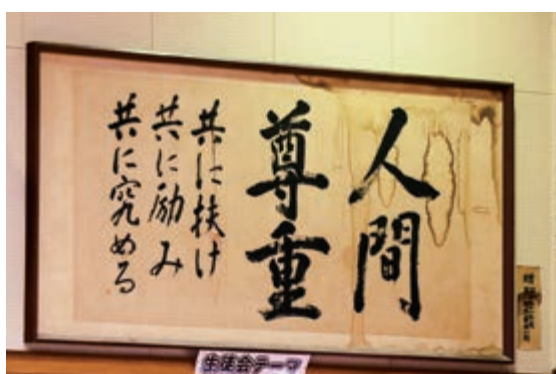 人間
尊重
共に扶け
共に励み
共に究める
生徒会テーマ